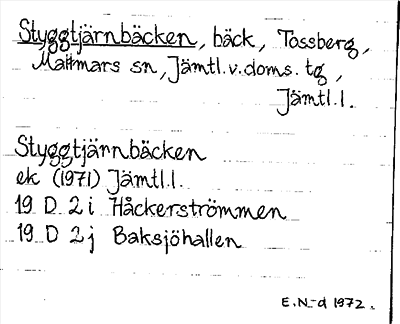 Styggtjärnbäcken, bäck, Tossberg,
Mattmars sn, Jämtl.v.doms. tg,
Jämtl.l.
Styggtjärnbäcken
ek (1971) Jämtl.l.
19 D 2 i Håckerströmmen
19 D 2 j Baksjöhallen
E.N-d 1972.